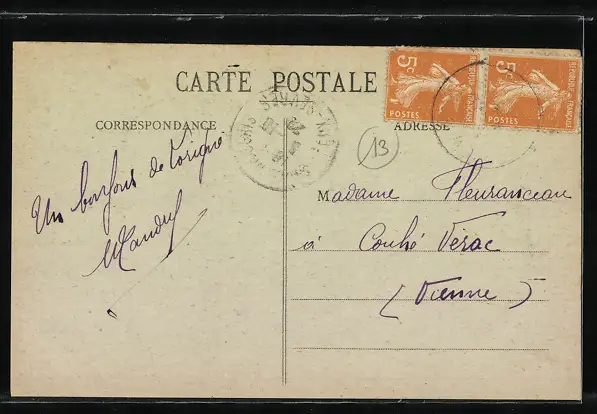 CARTE POSTALE
CORRESPONDANCE
ADRESSE
5c
REPUBLIQUE FRANÇAISE
POSTES
5c
REPUBLIQUE FRANÇAISE
POSTES
13
Un bonjour de Lorigné
Madame Fleuranceau
à Couhé Vérac
(Vienne)